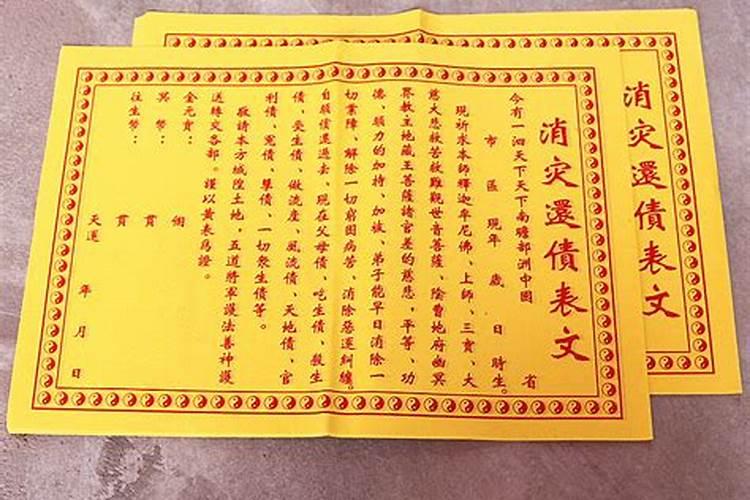 消灾還債表文
今有一泗天下天下南瞻部洲中國 省
市 區 現年 歲 日 時生。
現祈求本師釋迦牟尼佛、上師、三寶、大
慈大悲救苦救難觀世音菩薩、陰曹地府幽冥
界教主地藏王菩薩諸官差的慈悲，平等、功
德、願力的加持、加被、弟子能早日消除一
切業障、解除一切窮困病苦、消除惡運糾纏。
自願償還過去、現在父母債、吃生債、殺生
債、受生債、做流產、風流債、天地債、官
利債、冤債、孽債、一切眾生債等。
敬請本方城隍土地，五道將軍護法善神護
送轉交各部。謹以黃表為證。
金元寶： 個
冥幣： 貫
往生幣： 貫
天運 年 月 日
消灾還債表文